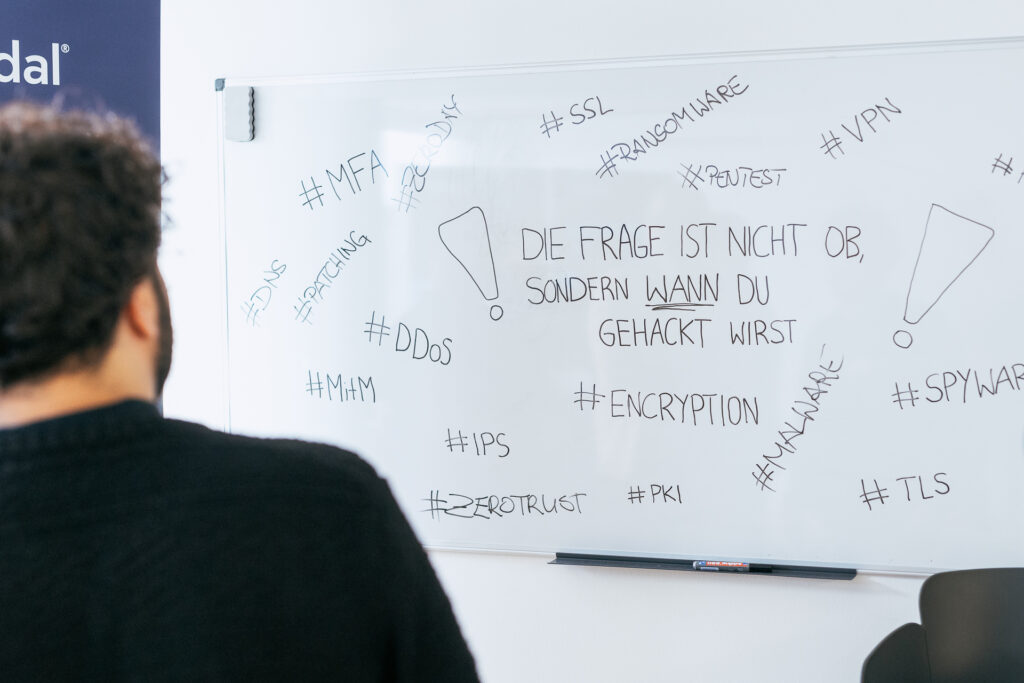 dal®
#SSL
#RANSOMWARE
#VPN
#MFA
#ZERODAY
#PENTEST
#DNS
#PATCHING
DIE FRAGE IST NICHT OB,
SONDERN WANN DU
GEHACKT WIRST
#DDoS
#MitM
#ENCRYPTION
#MALWARE
#SPYWAR
#IPS
#ZEROTRUST
#PKI
#TLS